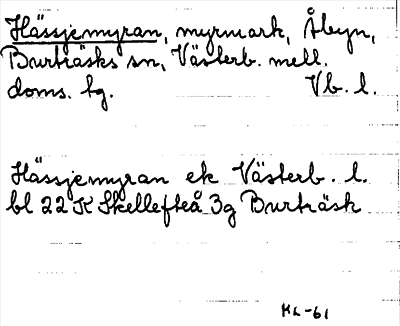 Hässjemyran, myrmark, Åbyn,
Burträsks sn, Västerb. mell.
doms. hg. Vb. l.
Hässjemyran ek Västerb. l.
bl 22 K Skellefteå 3g Burträsk
KL-61